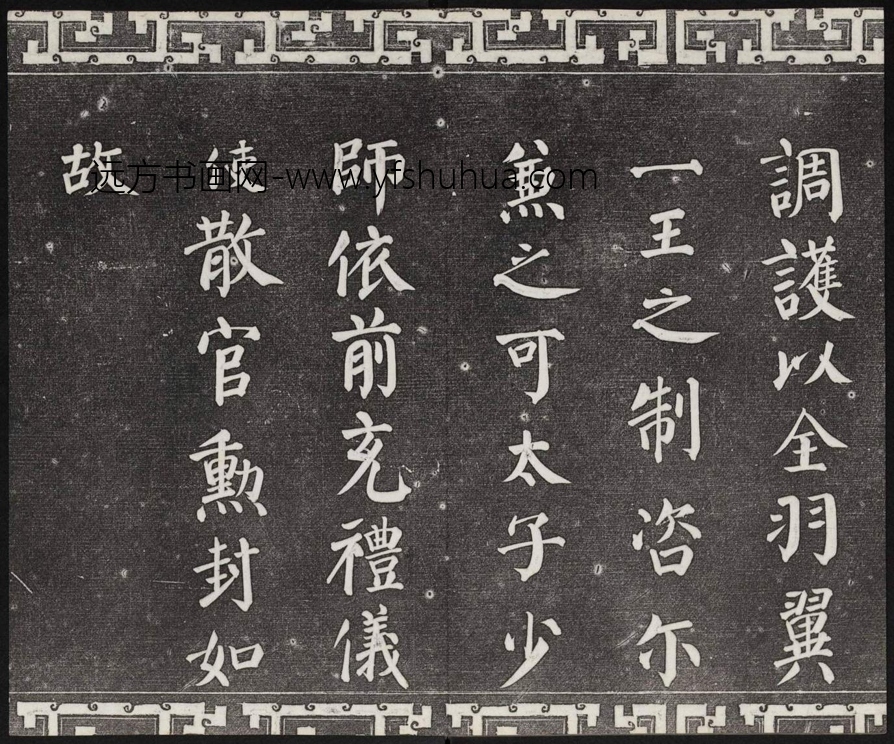 調護以全羽翼
一王之制咨尓
兼之可太子少
師依前充禮儀
使散官勳封如
故
远方书画网-www.yfshuhua.com